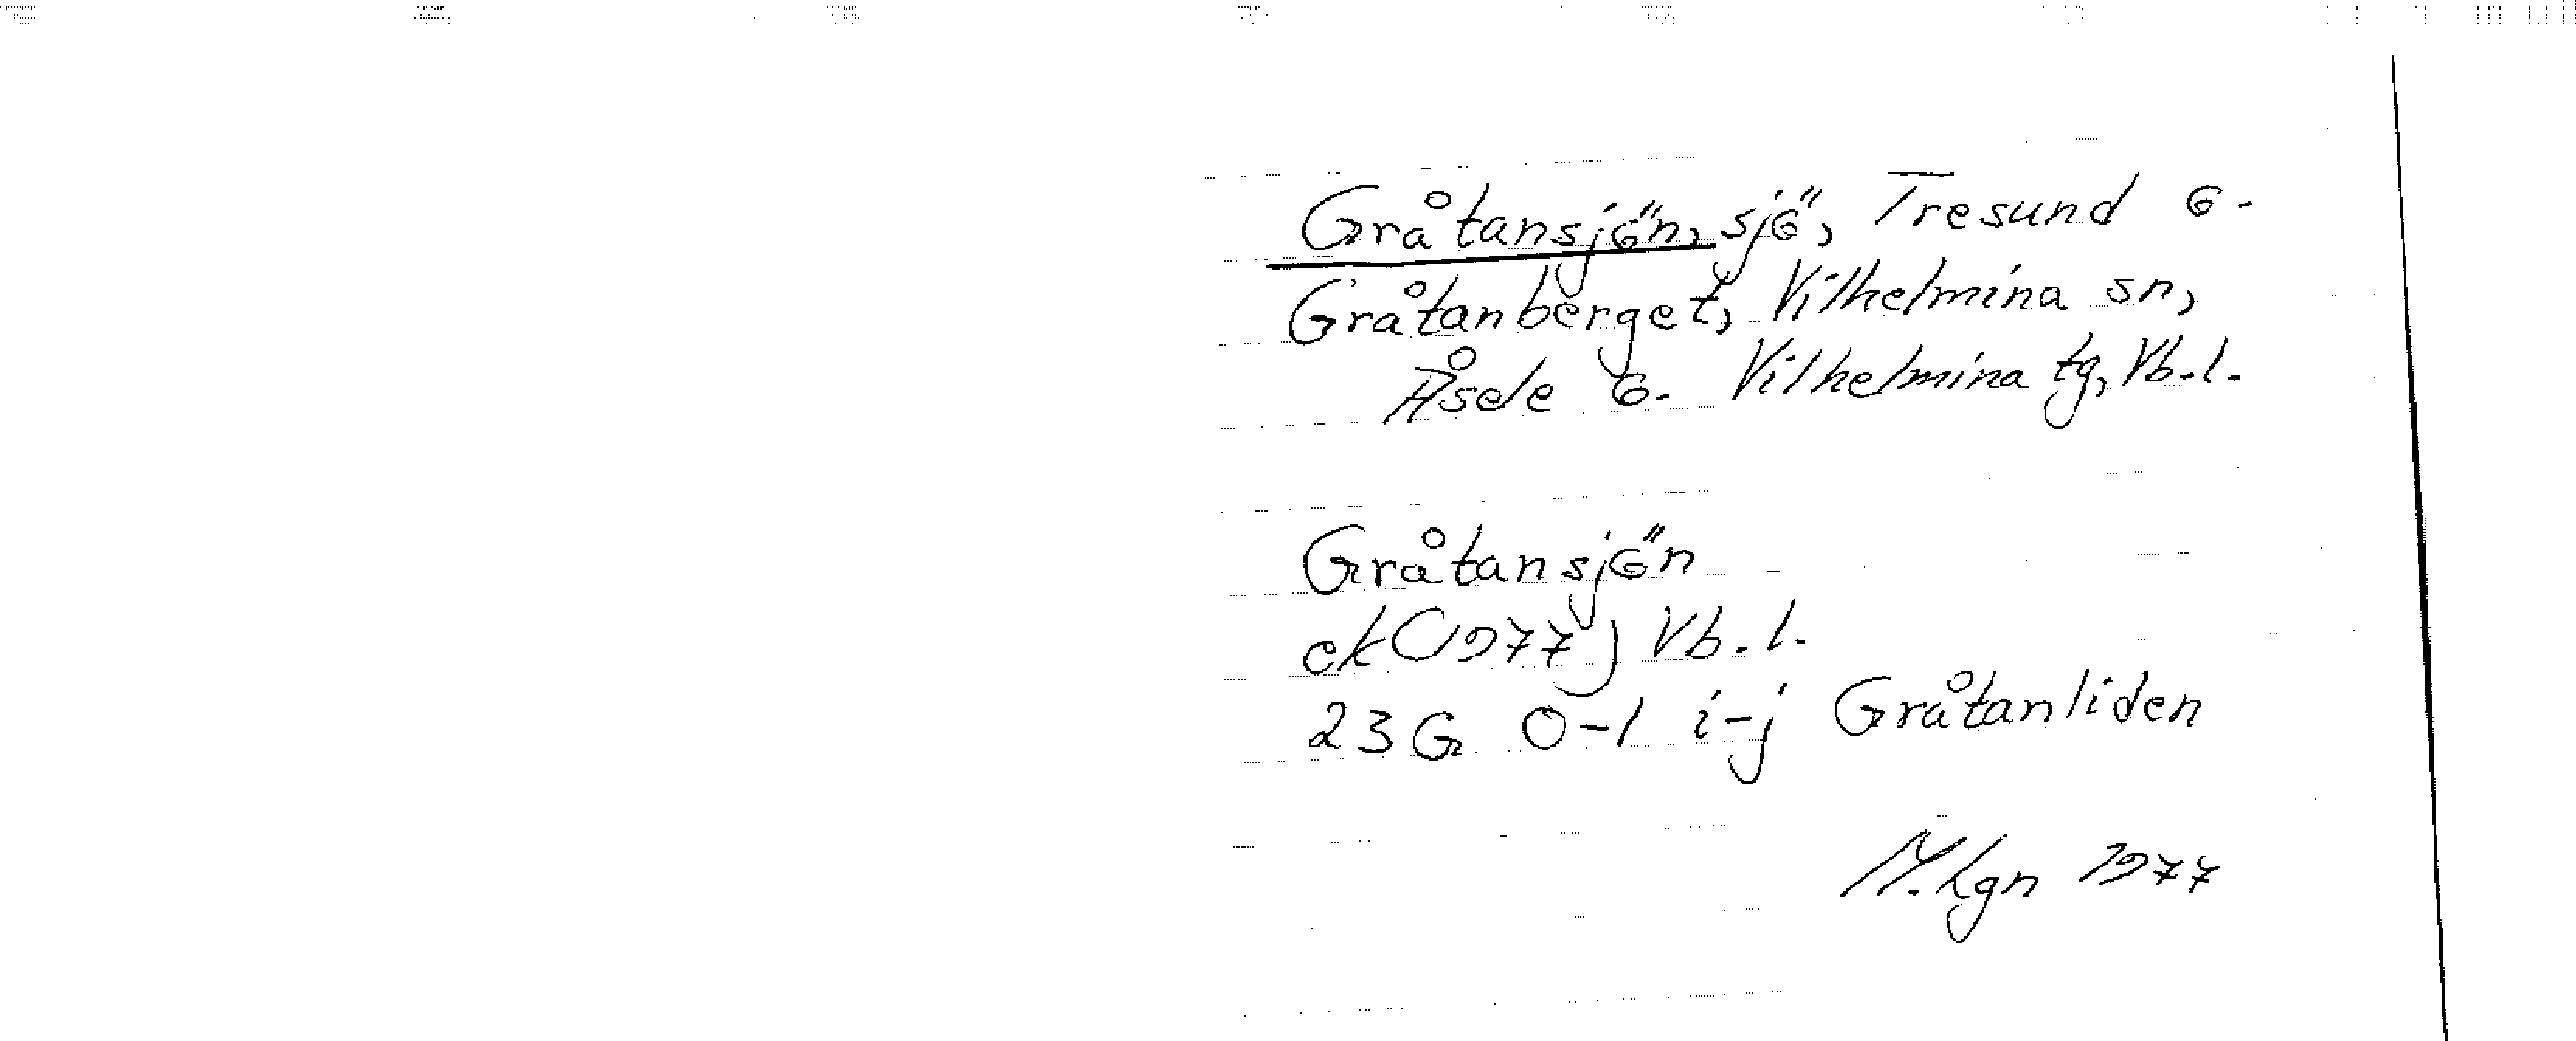 Gråtansjön, sjö, Tresund o.
Gråtanberget, Vilhelmina sn,
Åsele o. Vilhelmina tg, Vb.l.
Gråtansjön
ek (1977) Vb.l.
23G 0-1 i-j Gråtanliden
M.Lgn 1977